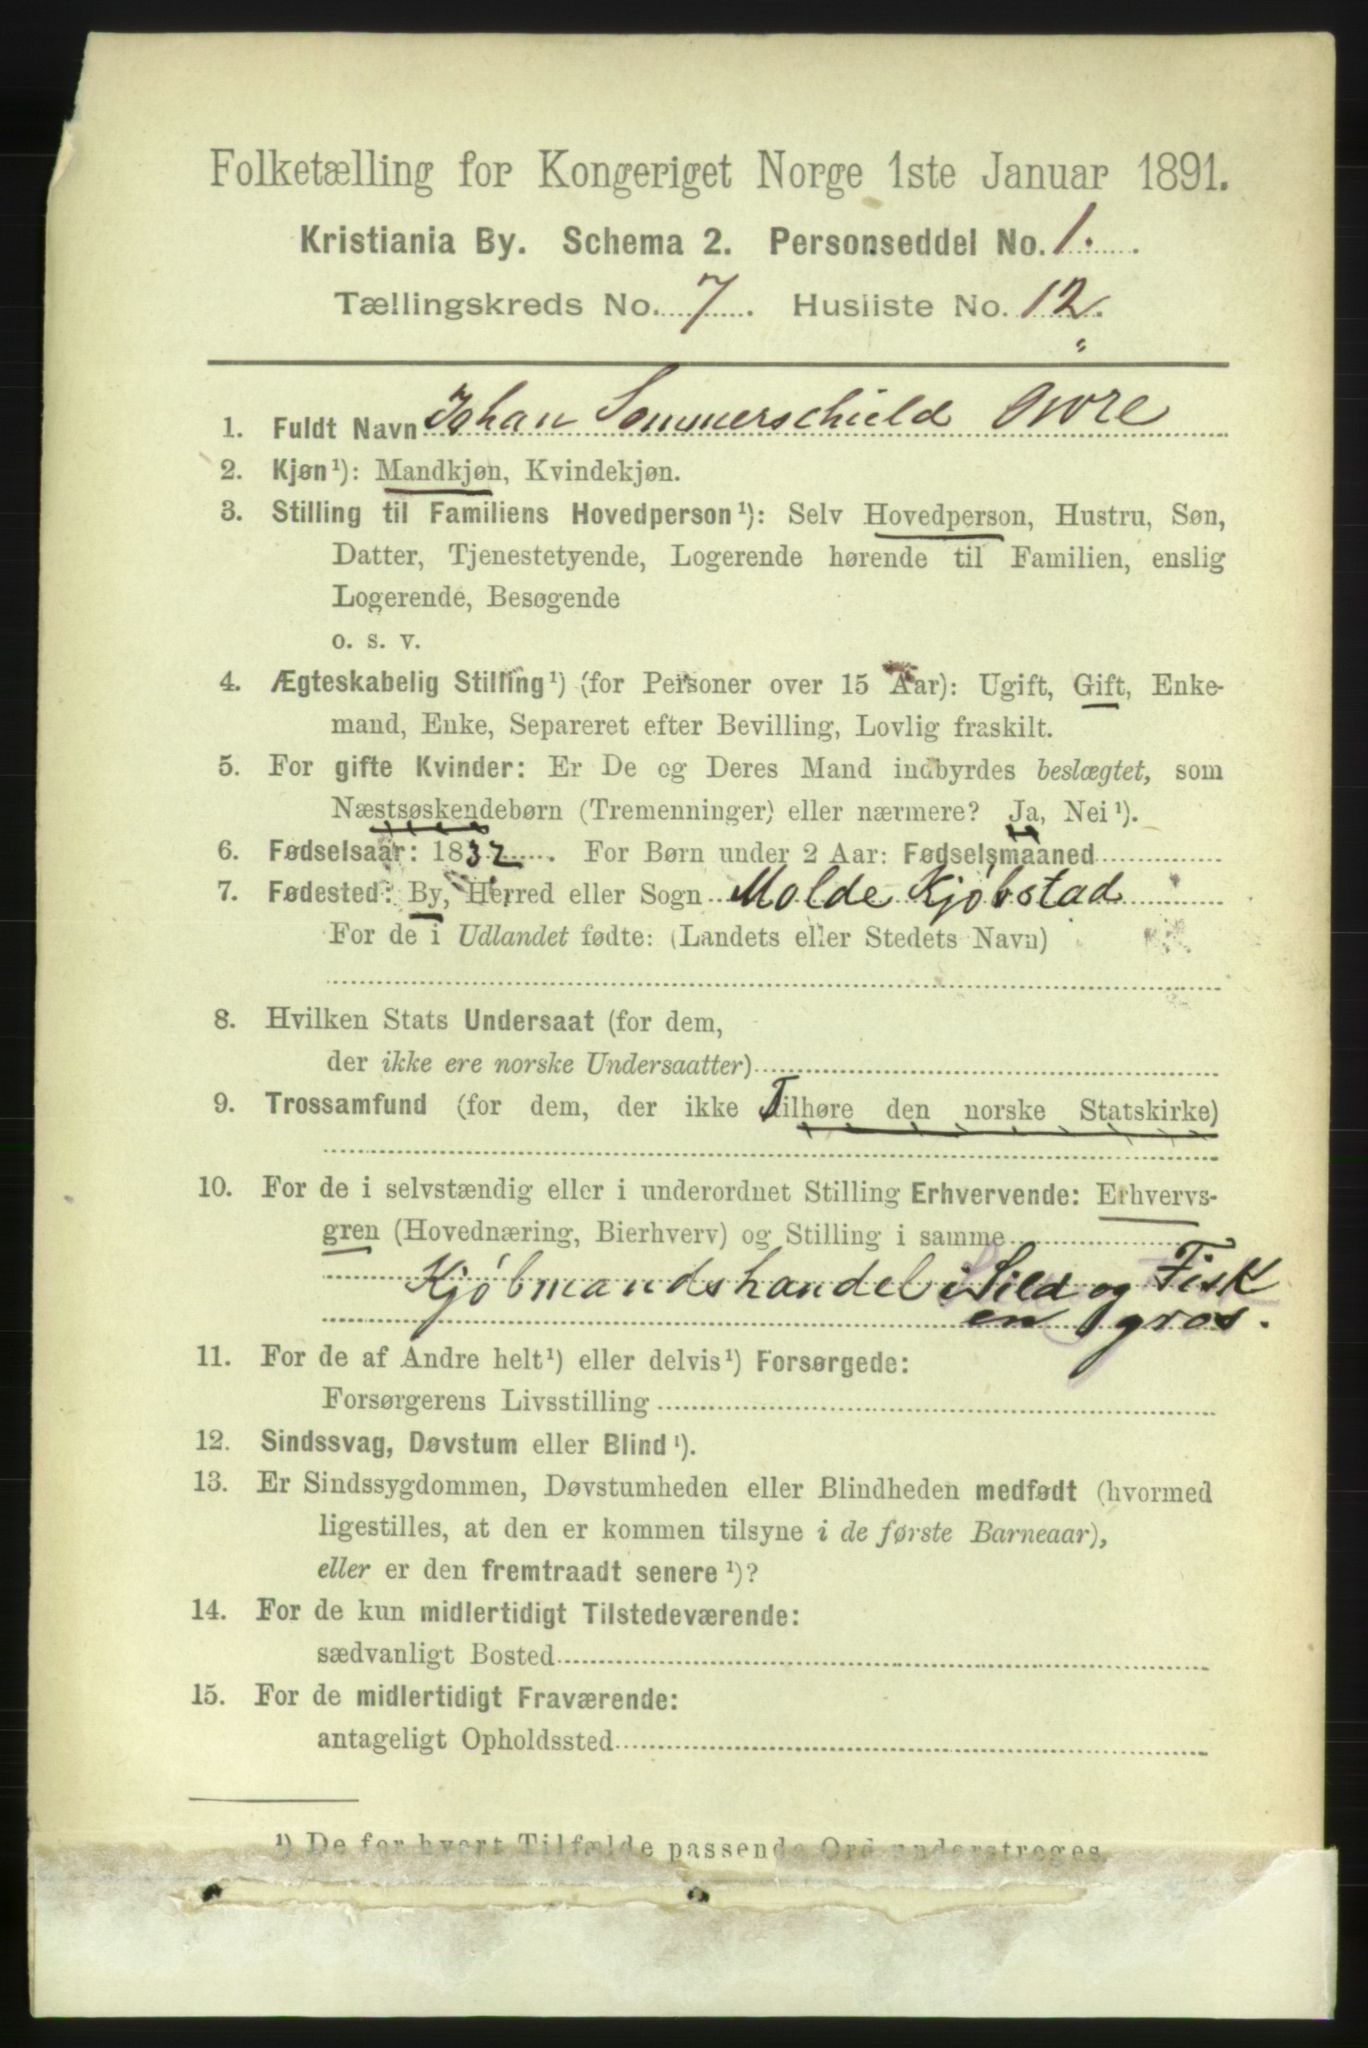 Folketælling for Kongeriget Norge 1ste Januar 1891.
Kristiania By. Schema 2. Personseddel No. 1.
Tællingskreds No. 7. Husliste No. 12.
1. Fuldt Navn Johan Sommerschield Owre
2. Kjøn ¹): Mandkjøn, Kvindekjøn.
3. Stilling til Familiens Hovedperson ¹): Selv Hovedperson, Hustru, Søn,
Datter, Tjenestetyende, Logerende hørende til Familien, enslig
Logerende, Besøgende
o. s. v.
4. Ægteskabelig Stilling ¹) (for Personer over 15 Aar): Ugift, Gift, Enke-
mand, Enke, Separeret efter Bevilling, Lovlig fraskilt.
5. For gifte Kvinder: Er De og Deres Mand indbyrdes beslægtet, som
Næstsøskendebørn (Tremenninger) eller nærmere? Ja, Nei ¹).
6. Fødselsaar: 1832. For Børn under 2 Aar: Fødselsmaaned
7. Fødested: By, Herred eller Sogn Molde Kjøbstad
For de i Udlandet fødte: (Landets eller Stedets Navn)
8. Hvilken Stats Undersaat (for dem,
der ikke ere norske Undersaatter)
9. Trossamfund (for dem, der ikke Tilhøre den norske Statskirke)
10. For de i selvstændig eller i underordnet Stilling Erhvervende: Erhvervs-
gren (Hovednæring, Bierhverv) og Stilling i samme
Kjøbmandshandel i Sild og Fisk
en gros.
11. For de af Andre helt ¹) eller delvis ¹) Forsørgede:
Forsørgerens Livsstilling
12. Sindssvag, Døvstum eller Blind ¹).
13. Er Sindssygdommen, Døvstumheden eller Blindheden medfødt (hvormed
ligestilles, at den er kommen tilsyne i de første Barneaar),
eller er den fremtraadt senere ¹)?
14. For de kun midlertidigt Tilstedeværende:
sædvanligt Bosted
15. For de midlertidigt Fraværende:
antageligt Opholdssted
¹) De for hvert Tilfælde passende Ord understreges.